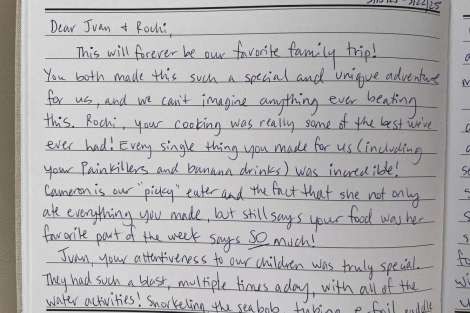 3/22/25
Dear Juan + Rochi,
This will forever be our favorite family trip!
You both made this such a special and unique adventure
for us, and we can't imagine anything ever beating
this. Rochi, your cooking was really some of the best we've
ever had! Every single thing you made for us (including
your Painkillers and banana drinks) was incredible!
Cameron is our "picky" eater and the fact that she not only
ate everything you made, but still says your food was her
favorite part of the week says SO much!
Juan, your attentiveness to our children was truly special.
They had such a blast, multiple times a day, with all of the
water activities! Snorkeling, the seabob, tubing, e-foil, paddle